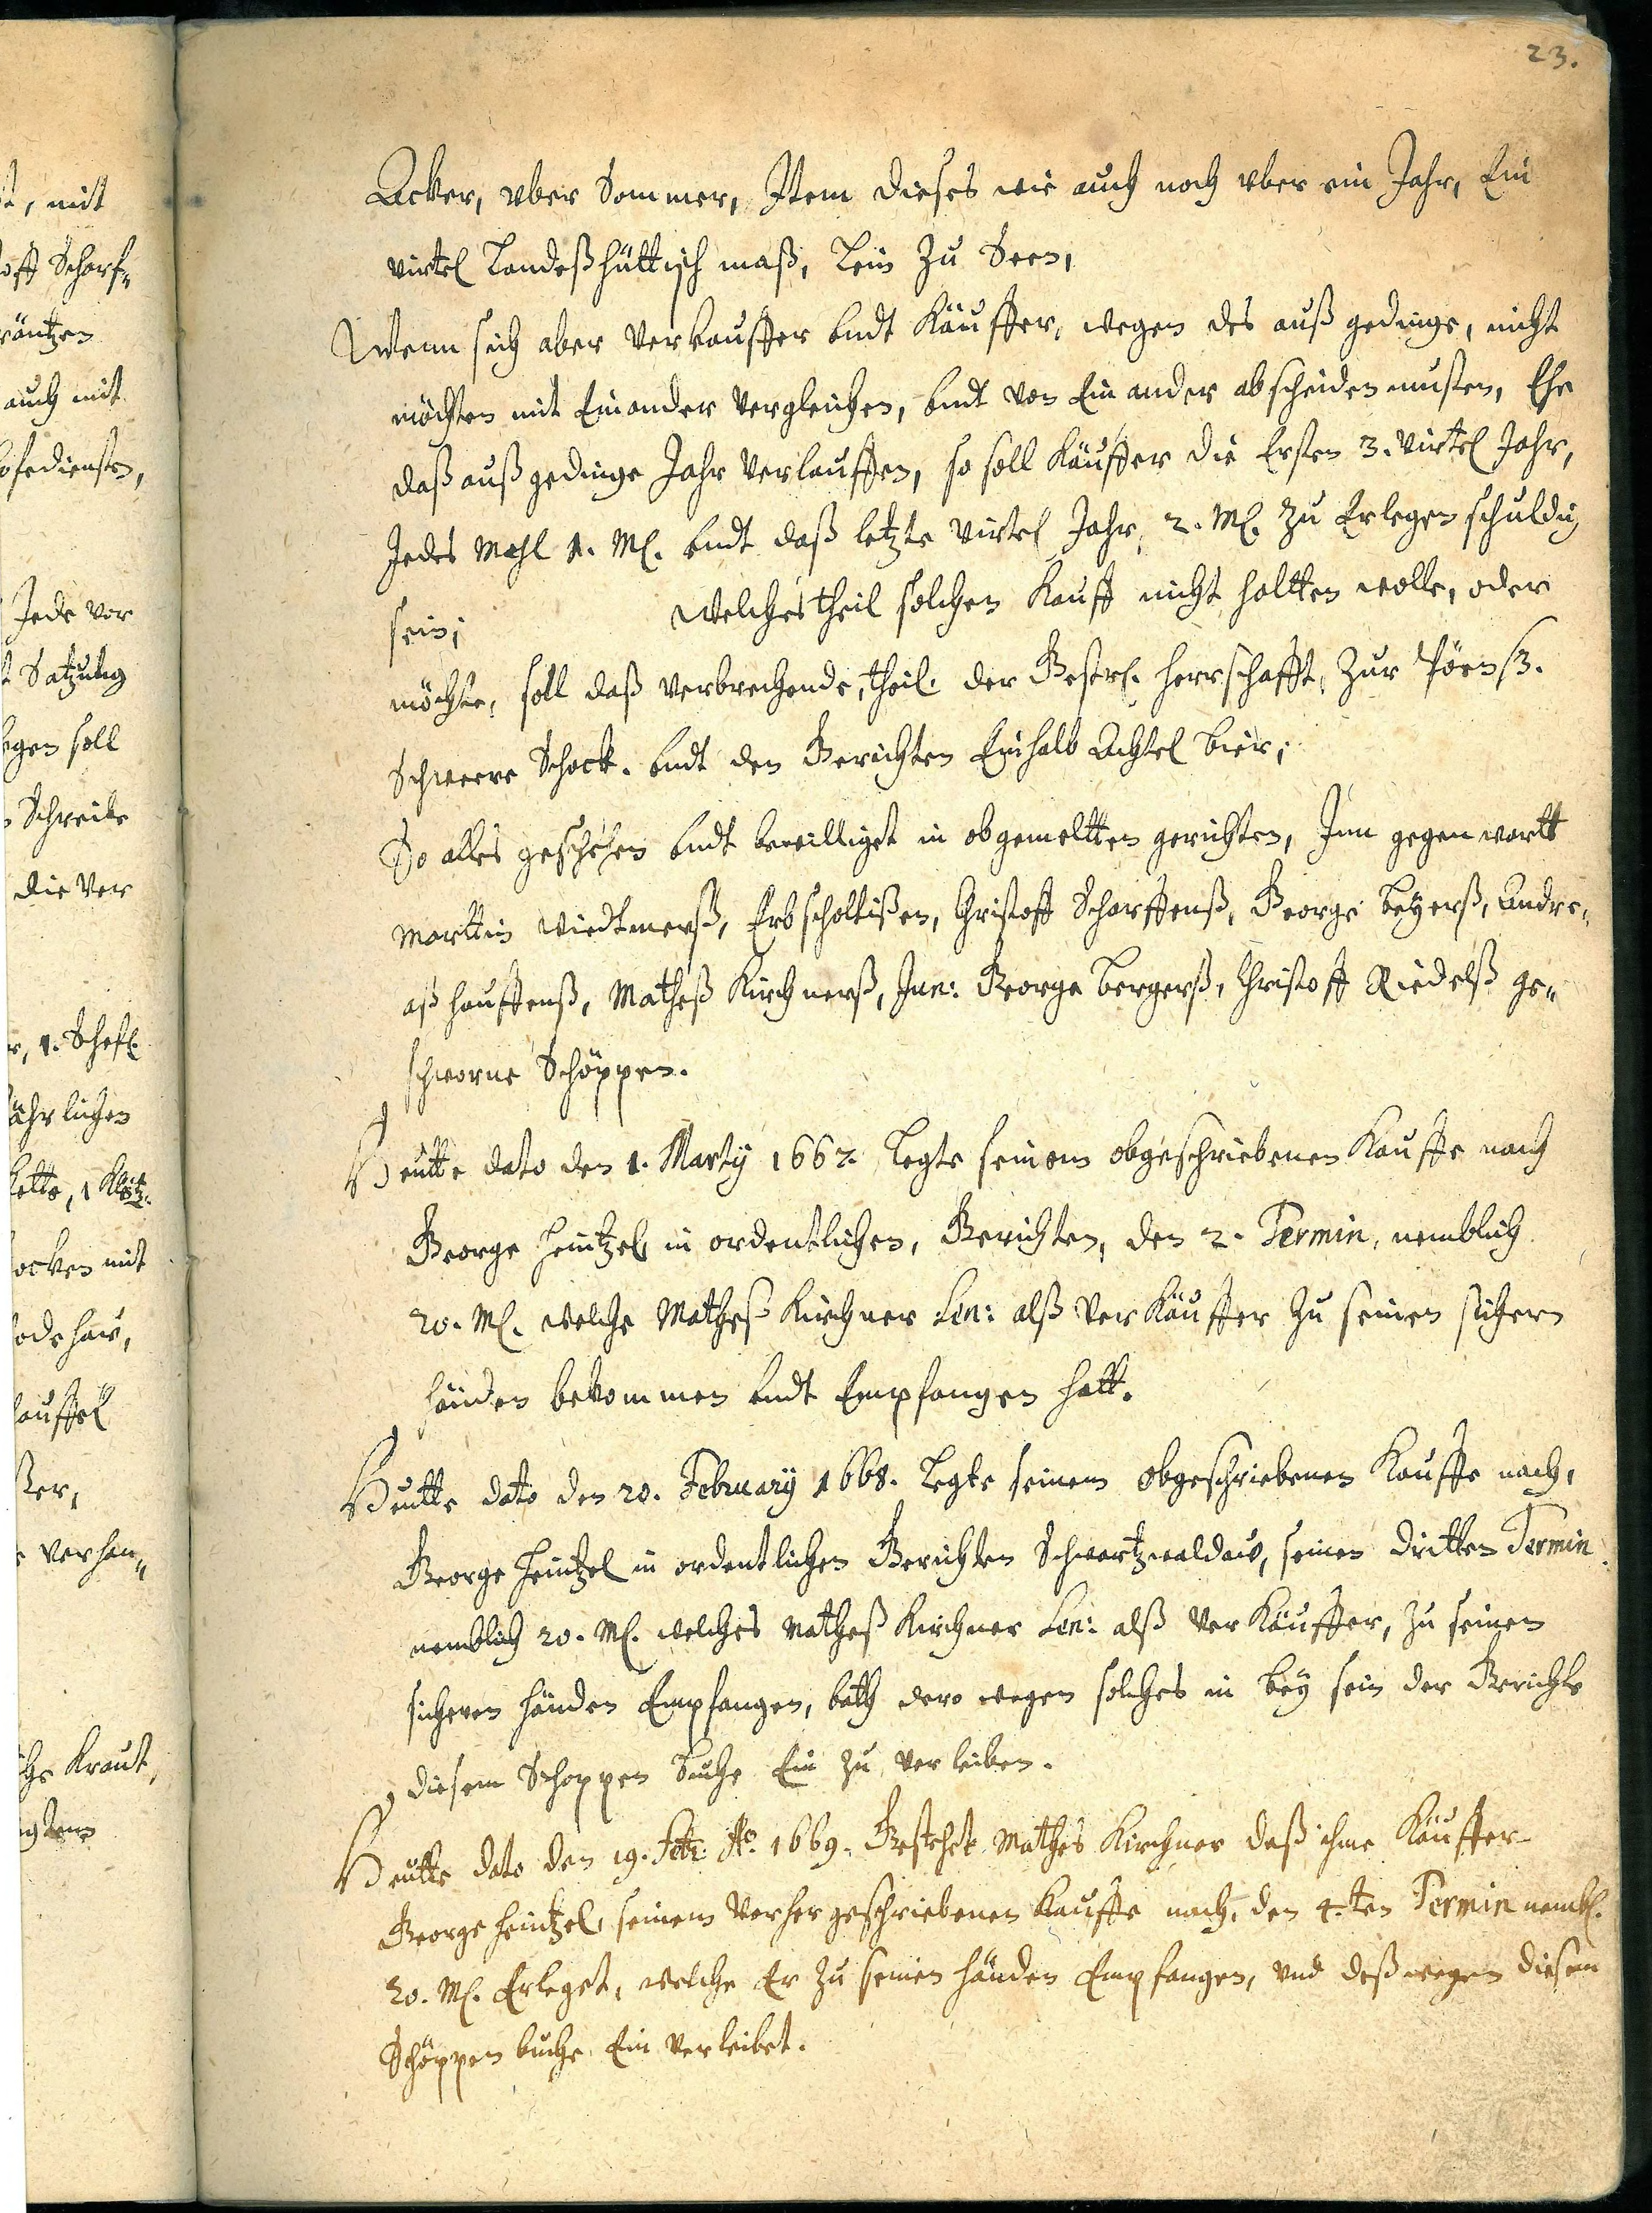 23.
Acker, vber Sommer, Item dieses wie auch noch vber ein Jahr, Ein
virtel Landeßhüttisch maß, Lein zu Seen,
Wenn sich aber Verkauffer vndt Käuffer, wegen des auß gedinge, nicht
möchten mit Einander Vergleichen, vndt von Ein ander abscheiden musten, Ehe
daß außgedinge Jahr Verlauffen, so soll Käuffer die Ersten 3. Virtel Jahr,
Jedes Mahl 1. M. vndt daß letzte Virtel Jahr, 2. M. zu Erlegen schuldig
sein; Welches theil solchen Kauff nicht haltten wolle, oder
möchte, soll daß verbrechende, theil der Gestr. Herrschafft, zur Pöen 3.
Schweere Schock. vndt den Gerichten Einhalb Achtel bier;
So alles geschehen vndt bewilliget in obgemeltten gerichten, Inn gegenwartt
Marttin Wiedtmerß, Erbscholtißen, Christoff Scharffenß, George Beyerß, Andre¬
aß Hauffenß, Matheß Kirchnerß, Jun: George Bergerß, Christoff Riedelß ge¬
schworne Schöppen.
Heutte dato den 1. Marty 1662. Legte seinem obgeschriebenen Kauffe nach
George Heintzel in ordentlichen, Gerichten, den 2. Termin, nemblich
20. M. welche Matheß Kirchner Sen: alß Ver Käuffer zu seinen sichern
händen bekommen vndt Empfangen hatt.
Heutte dato den 20. February 1668. Legte seinem obgeschriebenen Kauffe nach,
George Heintzel in ordentlichen Gerichten Schwartzwaldaw, seinen dritten Termin
nemblich 20. M. welches Matheß Kirchner Sen: alß Ver Käuffer, zu seinen
sicheren händen Empfangen, bath dero wegen solches in bey sein der Gerichte
diesem Schoppen Buche Ein zu verleiben.
Heutte dato den 19. Febr: Ao. 1669. Gestehet Mathes Kirchner daß ihme Käuffer
George Heintzel, seinem Vorhergeschriebenen Kauffe nach, den 4.ten Termin nembl.
20. M. Erleget, welche Er zu seinen händen Empfangen, vnd deßwegen diesem
Schöppen buche Ein verleibet.